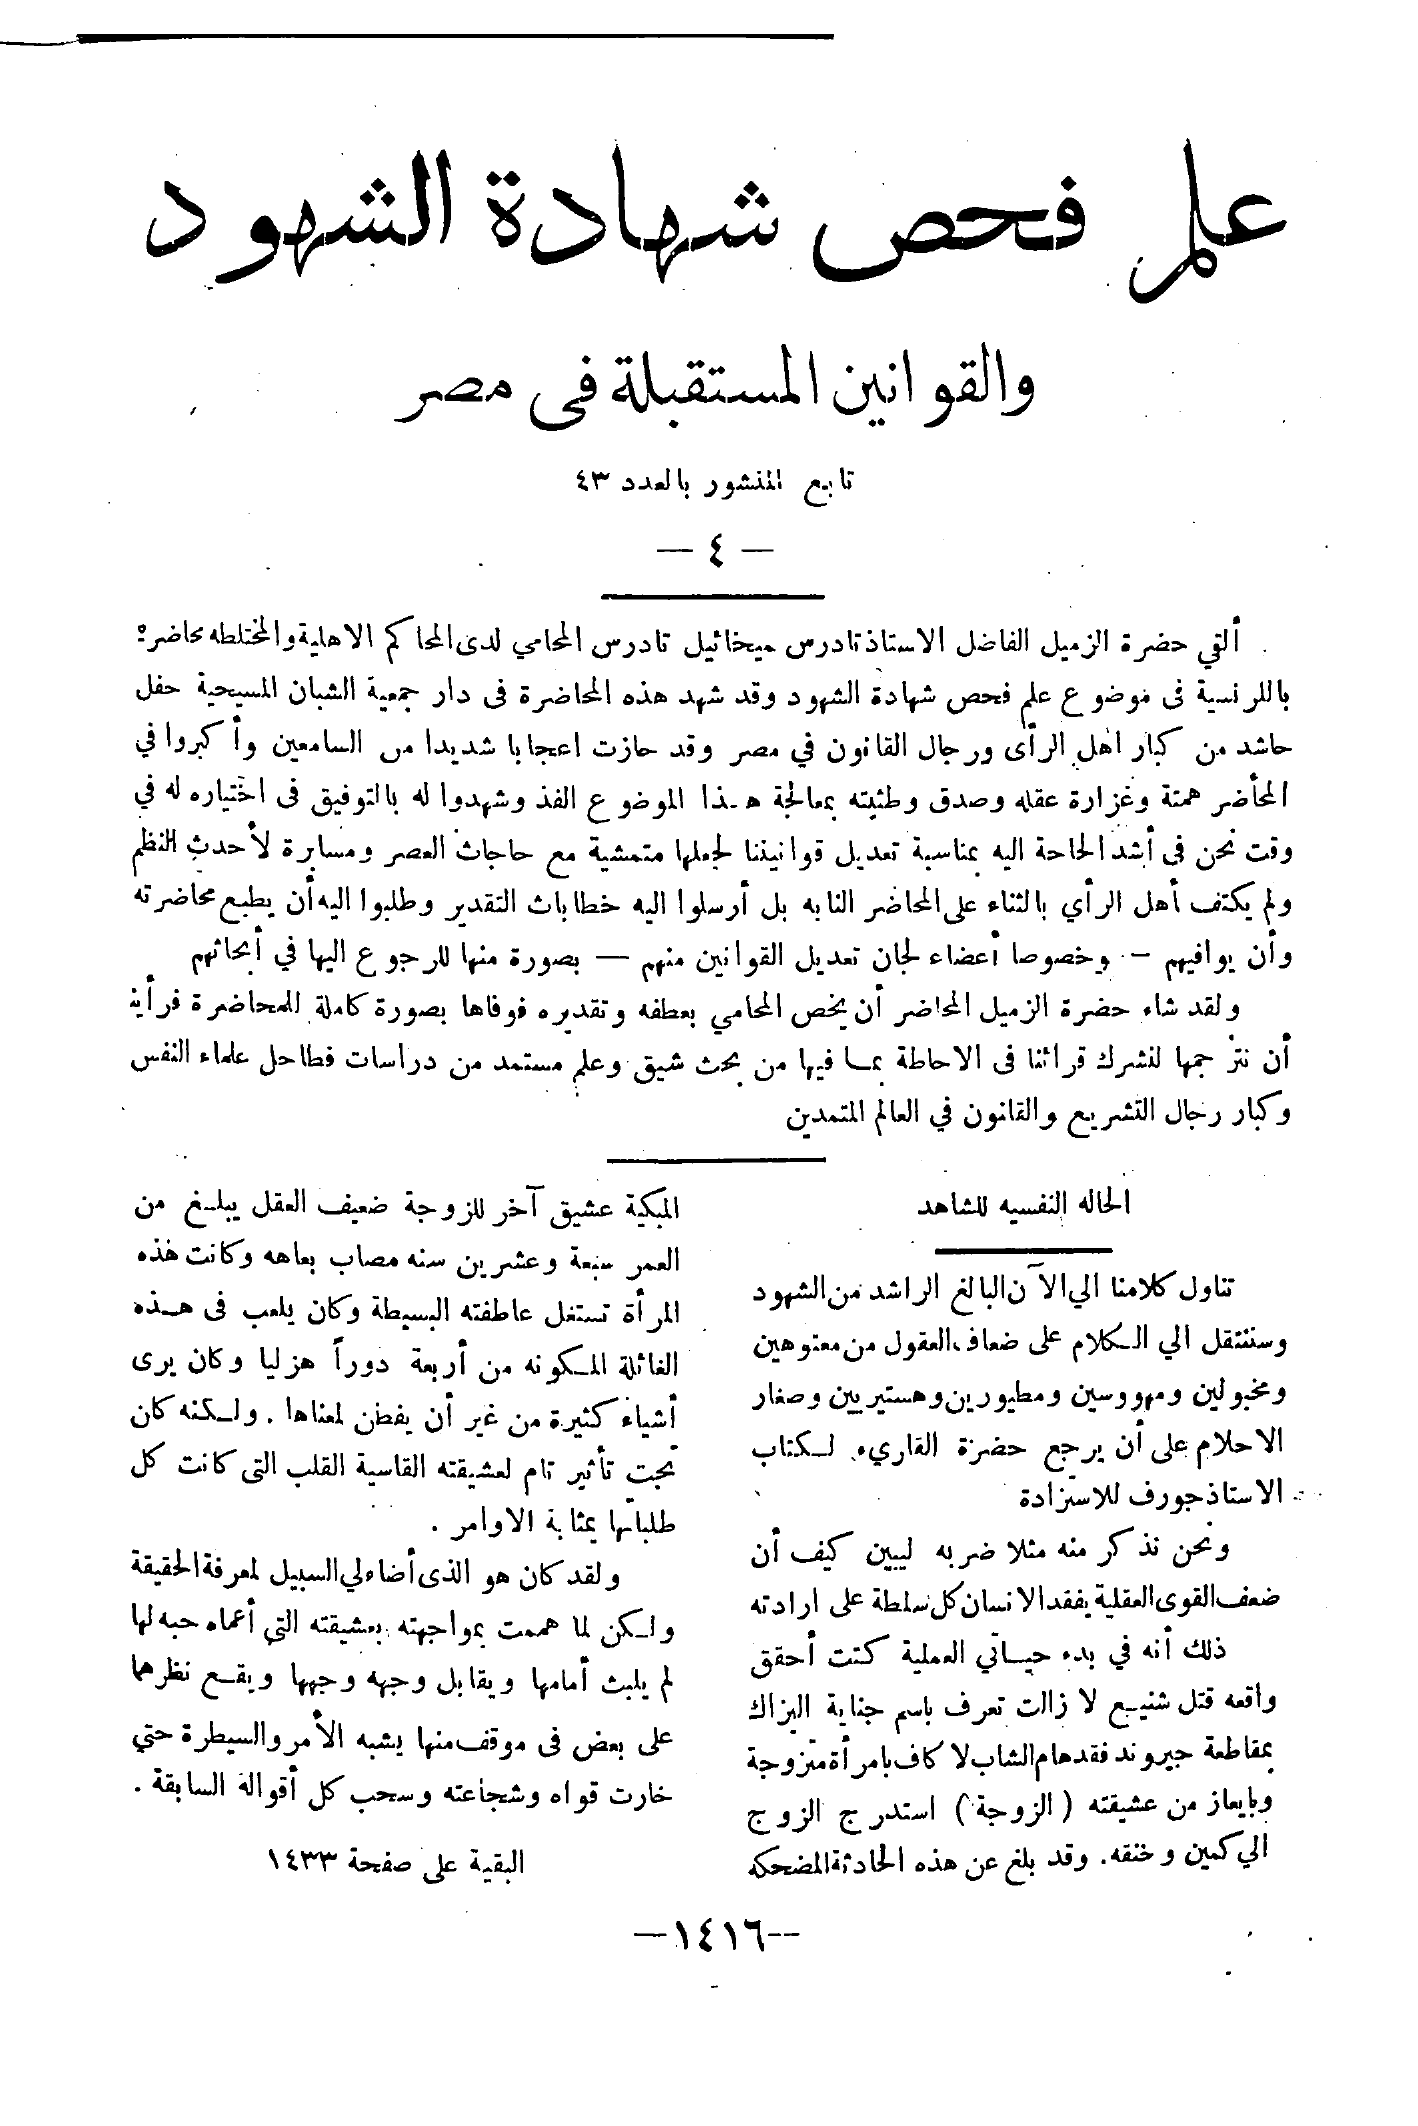 علم فحص شهادة الشهود
والقوانين المستقبلة فى مصر
تابع المنشور بالعدد ٤٣
— ٤ —
ألقي حضرة الزميل الفاضل الاستاذ تادرس ميخائيل تادرس المحامي لدى المحاكم الاهلية والمختلطه محاضرة
باللرنسية فى موضوع علم فحص شهادة الشهود وقد شهد هذه المحاضرة فى دار جمعية الشبان المسيحية حفل
حاشد من كبار اهل الرأى ورجال القانون في مصر وقد حازت اعجابا شديدا من السامعين وأكبروا في
المحاضر همتة وغزارة عقله وصدق وطنيته بمعالجة هذا الموضوع الفذ وشهدوا له بالتوفيق فى اختياره له في
وقت نحن فى أشد الحاحة اليه بمناسبة تعديل قوانيننا لجعلها متمشية مع حاجاث العصر ومسايرة لأحدث النظم
ولم يكتف أهل الرأي بالثناء على المحاضر النابه بل أرسلوا اليه خطاباث التقدير وطلبوا اليه أن يطبع محاضرته
وأن يوافيهم — وخصوصا أعضاء لجان تعديل القوانين منهم — بصورة منها للرجوع اليها في أبحاثهم
ولقد شاء حضرة الزميل المحاضر أن يخص المحامي بعطفه وتقديره فوفاها بصورة كاملة للمحاضرة فرأينا
أن نترجمها لنشرك قرائنا فى الاحاطة بما فيها من بحث شيق وعلم مستمد من دراسات فطاحل علماء النفس
وكبار رجال التشريع والقانون في العالم المتمدين
الحاله النفسيه للشاهد
تناول كلامنا الي الآن البالغ الراشد من الشهود
وسننتقل الي الكلام على ضعاف العقول من معتوهين
ومخبولين ومهووسين ومطيورين وهستيريين وصغار
الاحلام على أن يرجع حضرة القاريء لكتاب
الاستاذ جورف للاستزادة
ونحن نذكر منه مثلا ضربه ليبين كيف أن
ضعف القوى العقلية يفقد الانسان كل سلطة على ارادته
ذلك أنه في بدء حياتي العملية كنت أحقق
واقعه قتل شنيع لا زالت تعرف باسم جناية البزاك
بمقاطعة جيروند فقد هام الشاب لاكاف بامرأة متزوجة
وبايعاز من عشيقته ( الزوجة ) استدرج الزوج
الي كمين وخنقه. وقد بلغ عن هذه الحادثة المضحكه
المبكية عشيق آخر للزوجة ضعيف العقل يبلغ من
العمر سبعة وعشرين سنه مصاب بعاهه وكانت هذه
المرأة تستغل عاطفته البسيطة وكان يلعب فى هذه
العائلة المكونه من أربعة دوراً هزليا وكان يرى
أشياء كثيرة من غير أن يفطن لمعناها . ولكنه كان
تحت تأثير تام لعشيقته القاسية القلب التى كانت كل
طلباتها بمثابة الاوامر .
ولقد كان هو الذى أضاء لي السبيل لمعرفة الحقيقة
ولكن لما هممت بمواجهته بعشيقته التي أعماه حبه لها
لم يلبث أمامها ويقابل وجهه وجهها ويقع نظرهما
على بعض فى موقف منها يشبه الأمر والسيطرة حتي
خارت قواه وشجاعته وسحب كل أقواله السابقة .
البقية على صفحة ١٤٣٣
—١٤١٦—